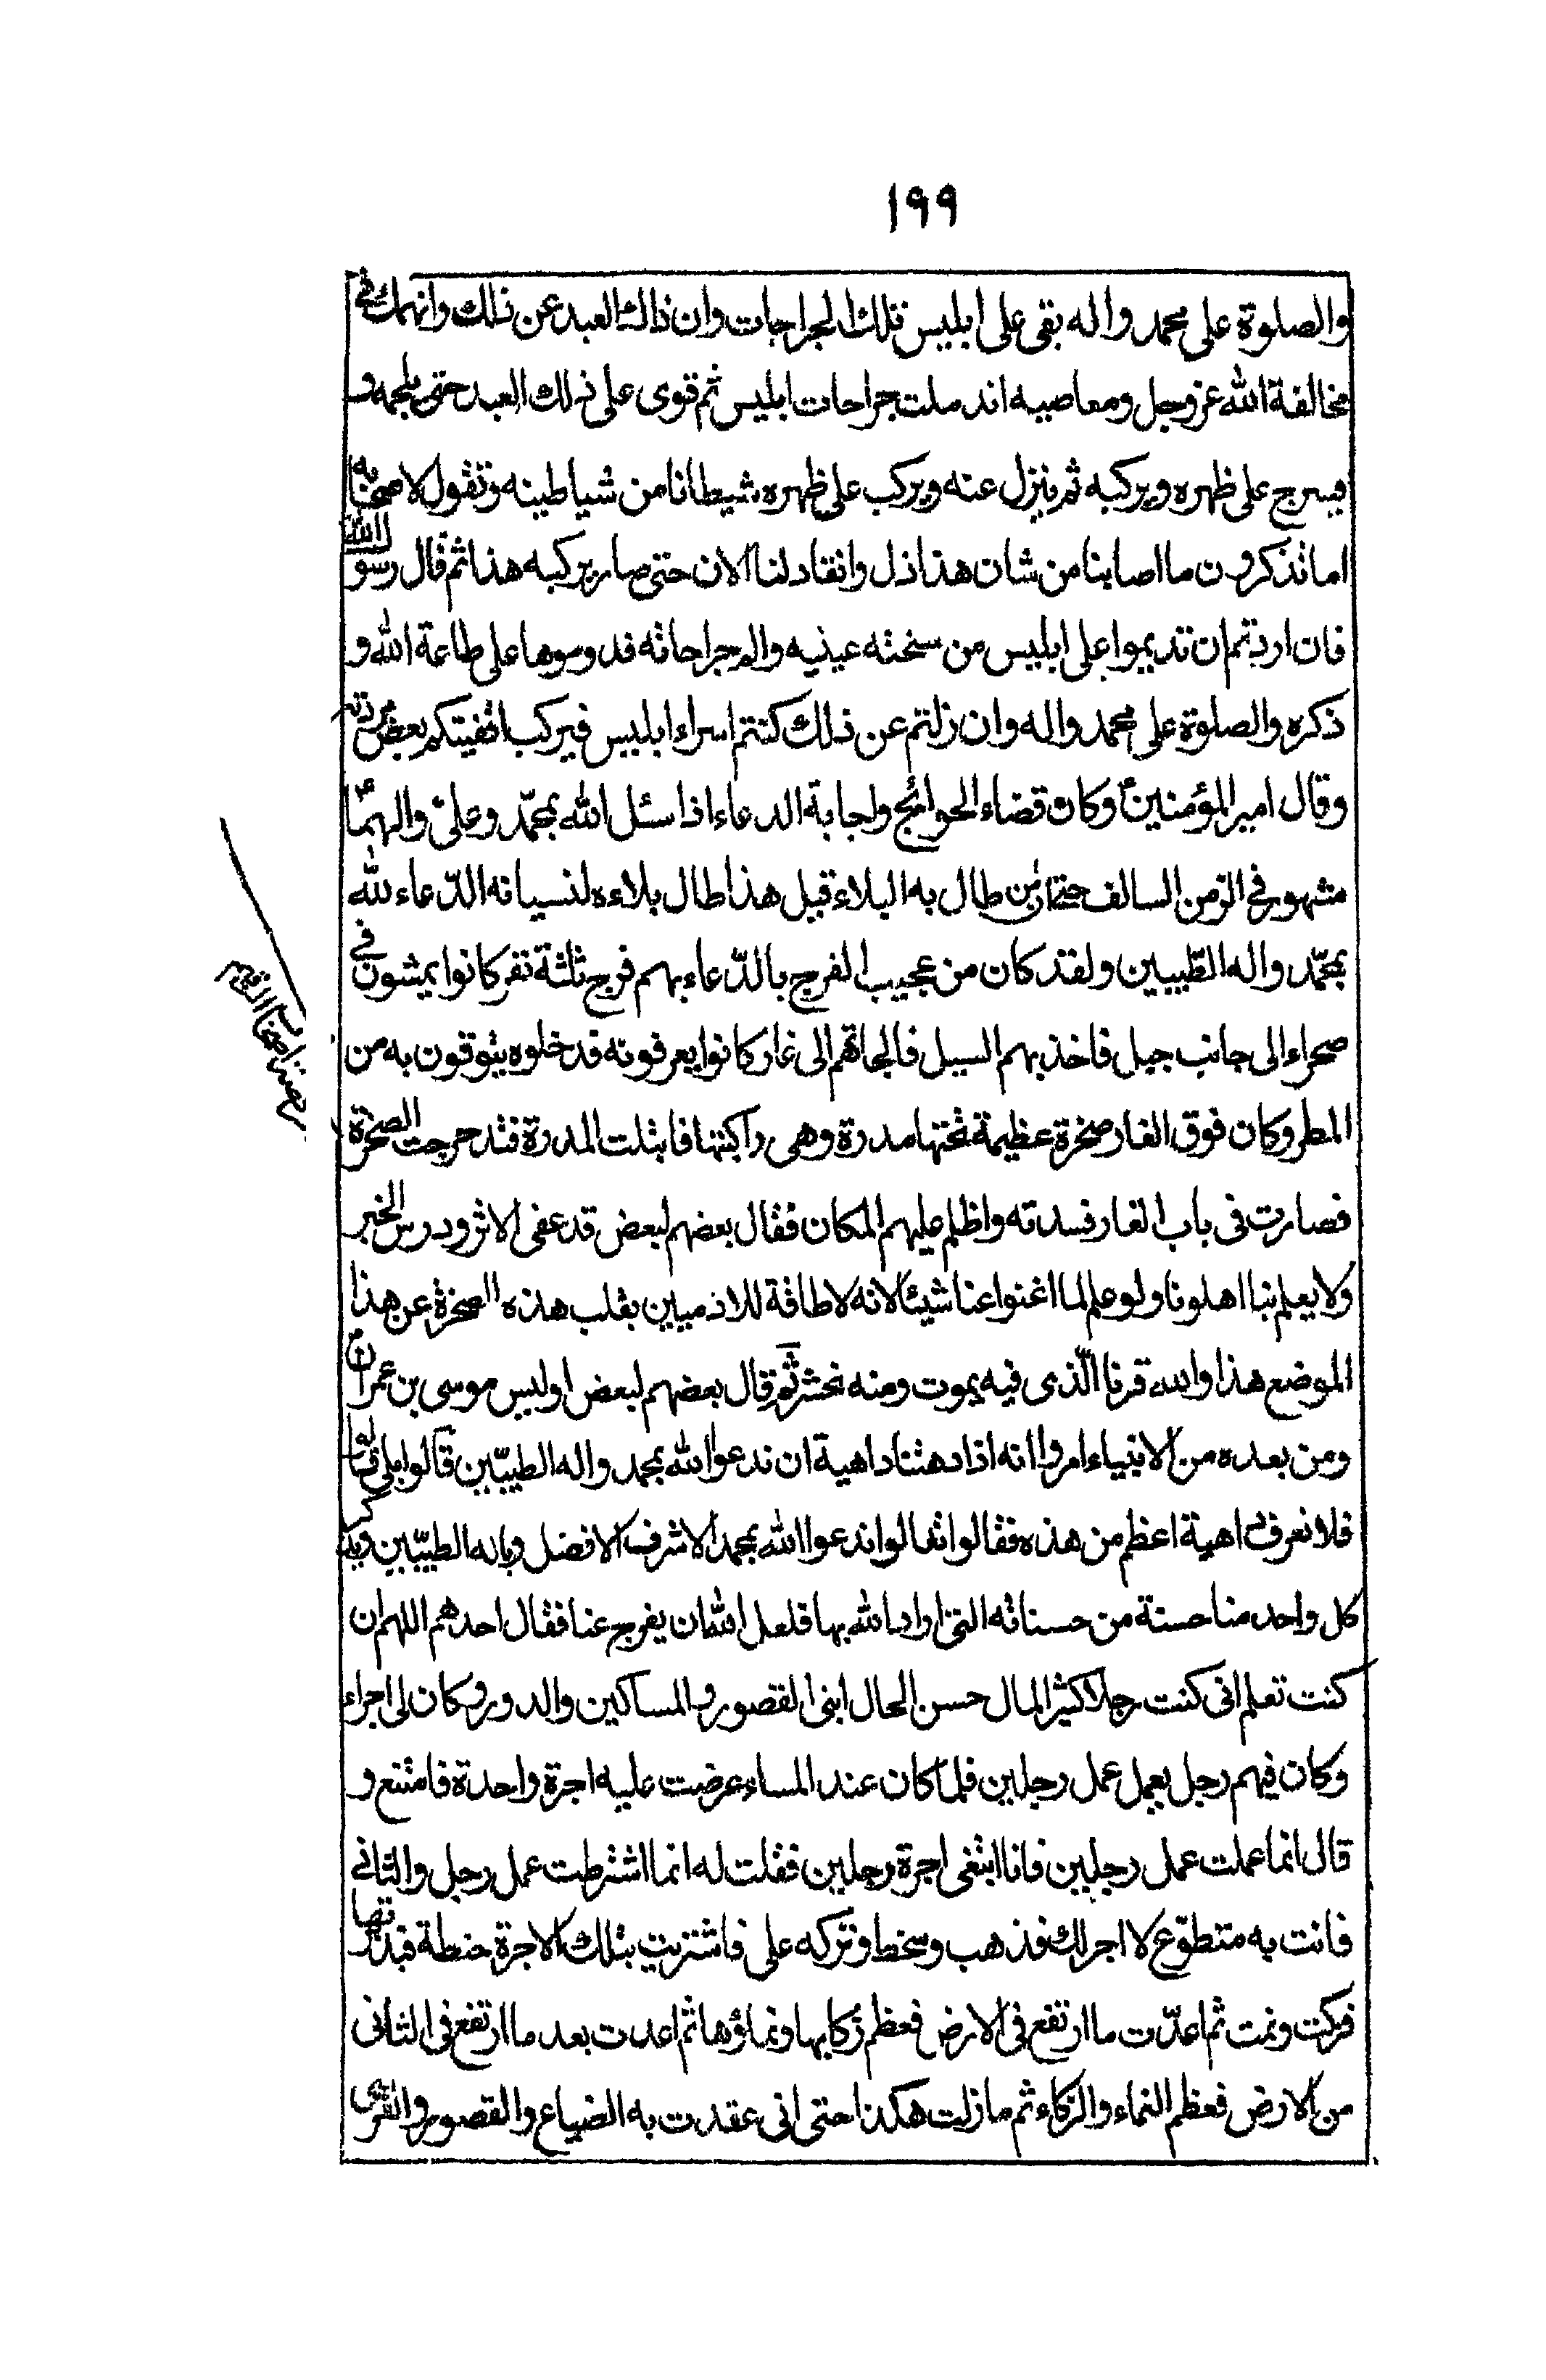 ١٩٩
والصلوة على محمد واله بقى على ابليس تلك الجراحات وان ذلك العبد عن ذلك وانهمك فى
مخالفة الله عز وجل ومعاصيه اندملت جراحات ابليس ثم قوى على ذلك العبد حتى يلجمه و
يسرج على ظهره ويركبه ثم ينزل عنه ويركب على ظهره شيطانا من شياطينه وتقول لاصحابه
اما تذكرون ما اصابنا من شان هذا ذل وانقاد لنا الان حتى صار يركبه هذا ثم قال رسول الله
فان اردتم ان تديموا على ابليس من سخنته عينيه والم جراحاته فدوموها على طاعة الله و
ذكره والصلوة على محمد واله وان زلتم عن ذلك كنتم اسراء ابليس فيركب اقفيتكم بعض مردته
وقال امير المؤمنينؑ وكان قضاء الحوائج واجابة الدعاء اذا سئل الله بمحمّد وعلىؑ والهماؑ
مشهور فى الزمن السالف حتى ان من طال به البلاء قيل هذا طال بلاءه لنسيانه الدّعاء لله
بمحمّد واله الطّيبين ولقد كان من عجيب الفرج بالدّعاء بهم فرج ثلثة نفر كانوا يمشون فى
صحراء الى جانب جبل فاخذ بهم السيل فالجاتهم الى غار كانوا يعرفونه فدخلوه يتوقون به من
المطر وكان فوق الغار صخرة عظيمة تحتها مدرة وهى راكبتها فابتلت المدرة فتدحرجت الصخرة
فصارت فى باب الغار فسدته واظلم عليهم المكان فقال بعضهم لبعض قد عفى الاثر ودرس الخبر
ولا يعلم بنا اهلونا ولو علم لما اغنوا عنا شيئا لانه لا طاقة للادميين بقلب هذه الصخرة عن هذا
الموضع هذا والله قبرنا الّذى فيه يموت ومنه نحشر ثم قال بعضهم لبعض اوليس موسى بن عمران
ومن بعده من الانبياء امروا انه اذا دهتنا داهية ان ندعوا الله بمحمد واله الطيبّين قالوا بلى قالوا
فلا نعرف داهية اعظم من هذه فقالوا تعالوا ندعوا الله بمحمد الاشرف الافضل وباله الطيبّين ويذكر
كل واحد منا حسنة من حسناته التى اراد الله بها فلعل الله ان يفرج عنا فقال احدهم اللهم ان
كنت تعلم انى كنت رجلا كثير المال حسن الحال ابنى القصور والمساكين والدور وكان لى اجراء
وكان فيهم رجل يعمل عمل رجلين فلمّا كان عند المساء عرضت عليه اجرة واحدة فامتنع و
قال انما عملت عمل رجلين فانا ابتغى اجرة رجلين فقلت له انما اشترطت عمل رجل والثانى
فانت به متطوّع لا اجر لك فذهب وسخط وتركه على فاشتريت بتلك الاجرة حنطة فبذرتها
فزكت ونمت ثم اعدّت ما ارتفع فى الارض فعظم زكايها ونماؤها ثم اعدت بعد ما ارتفع فى الثانى
من الارض فعظم النماء والزكاء ثم ما زلت هكذا حتى انى عقدت به الضياع والقصور والقرى